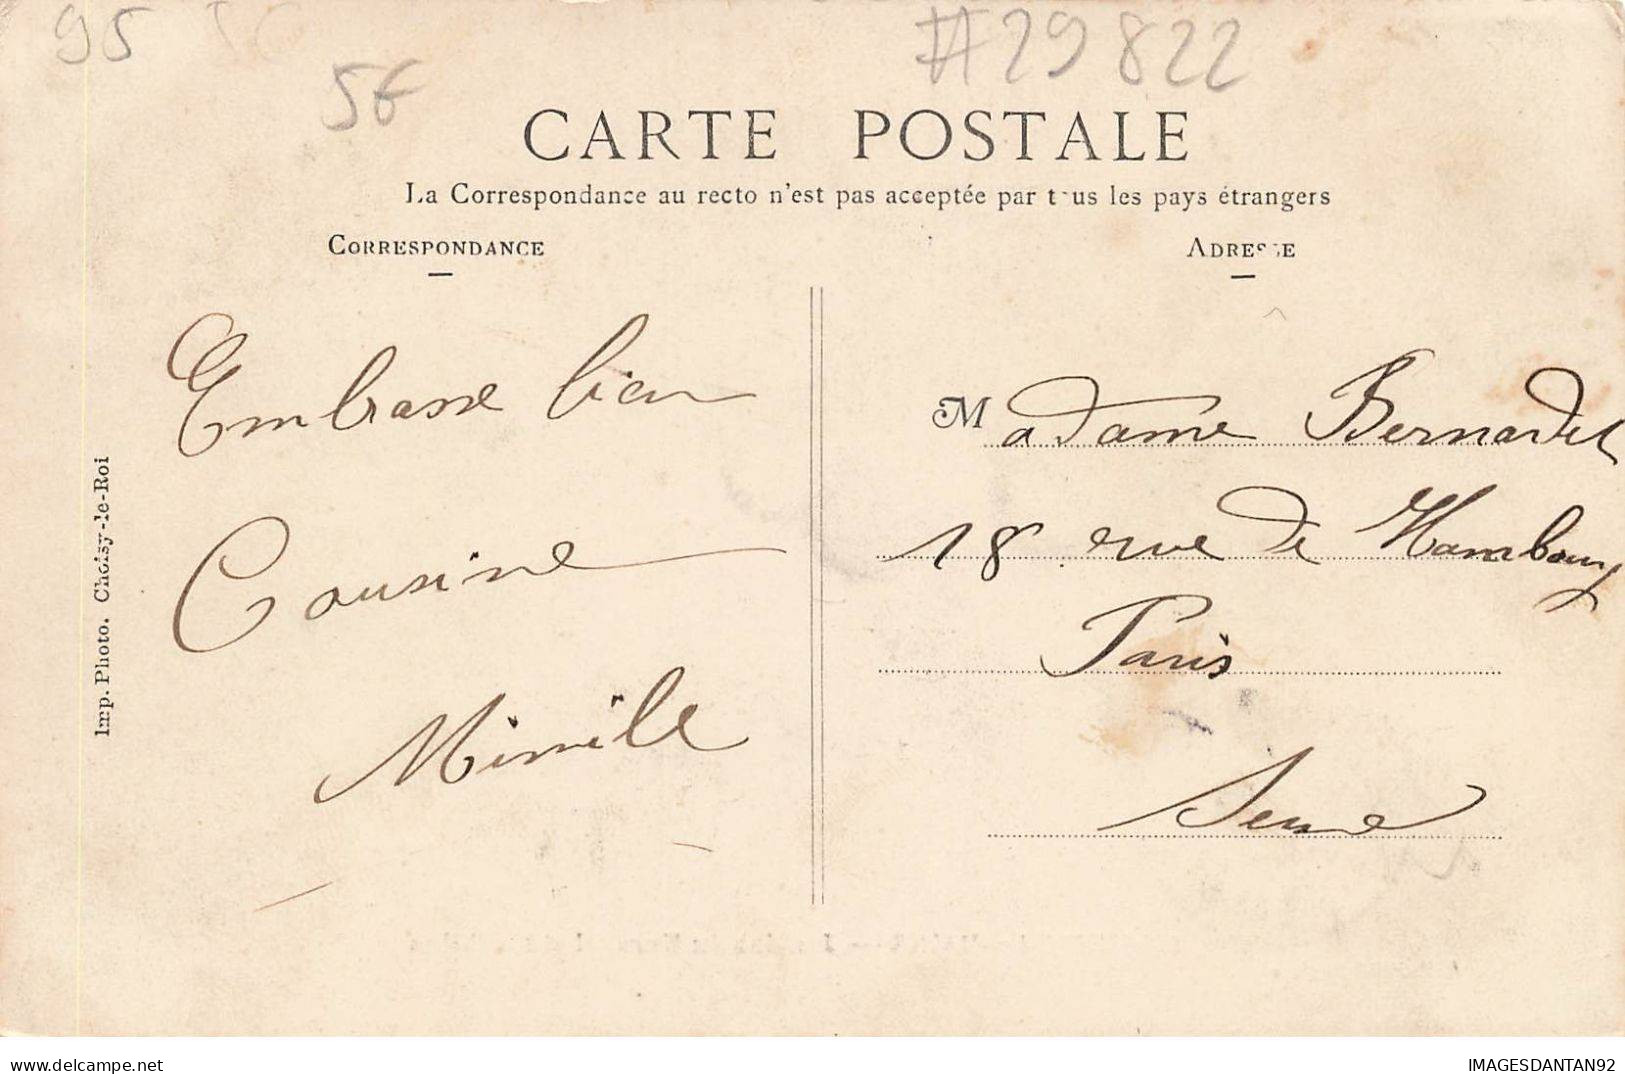 95
5€
#29822
CARTE POSTALE
La Correspondance au recto n'est pas acceptée par tous les pays étrangers
CORRESPONDANCE
ADRESSE
Embrasse bien
Cousine
Mimile
Madame Bernardet
18 rue de Hambourg
Paris
Seine
Imp. Photo. Choisy-le-Roi
delcampe.net
IMAGESDANTAN92